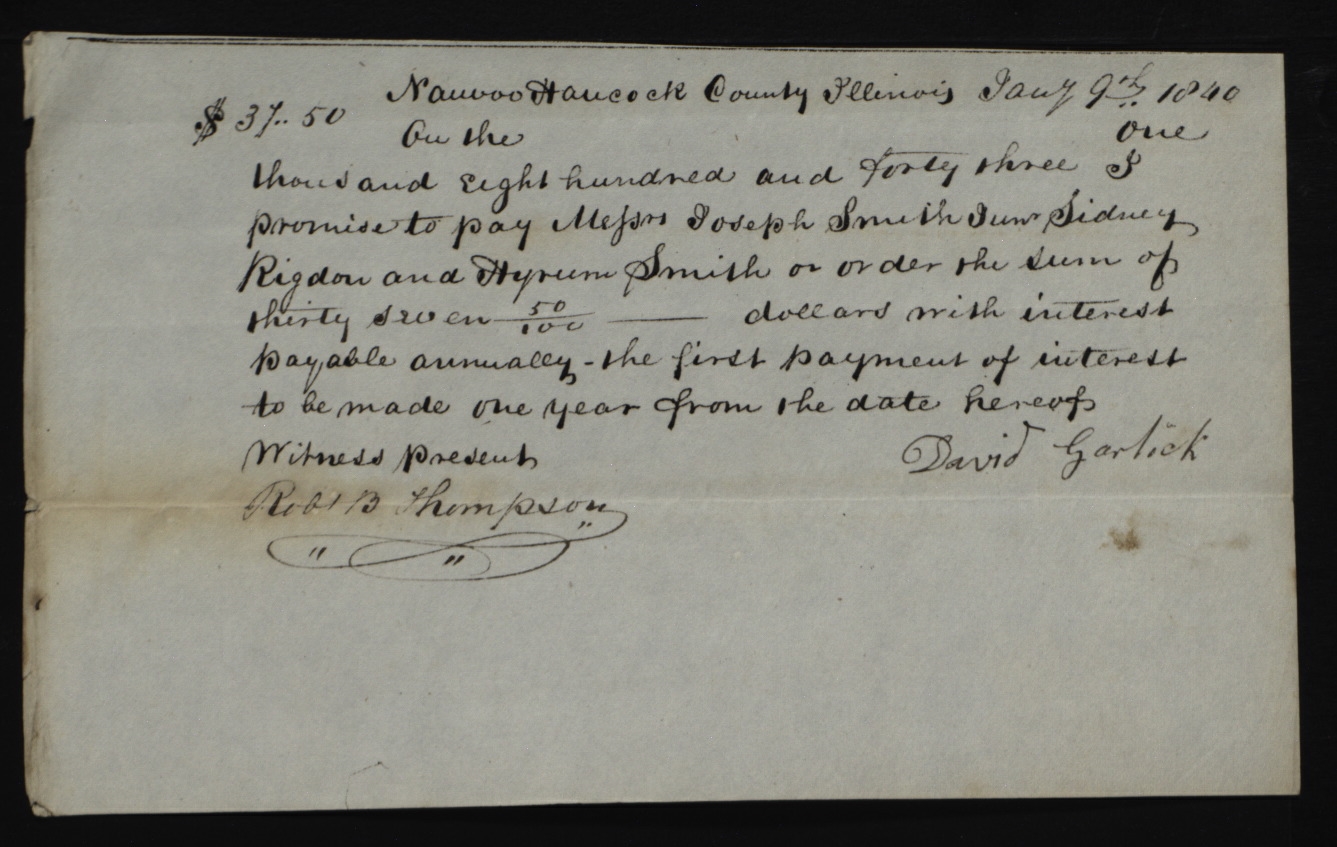 Nauvoo Hancock County Illinois Jany 9th 1840
$ 37.. 50
On the one
thousand eight hundred and forty three I
promise to pay Messrs Joseph Smith Junr Sidney
Rigdon and Hyrum Smith or order the sum of
thirty seven 50/100 —— dollars with interest
payable annually - the first payment of interest
to be made one year from the date hereof
Witness present David Garlick
Robt B Thompson